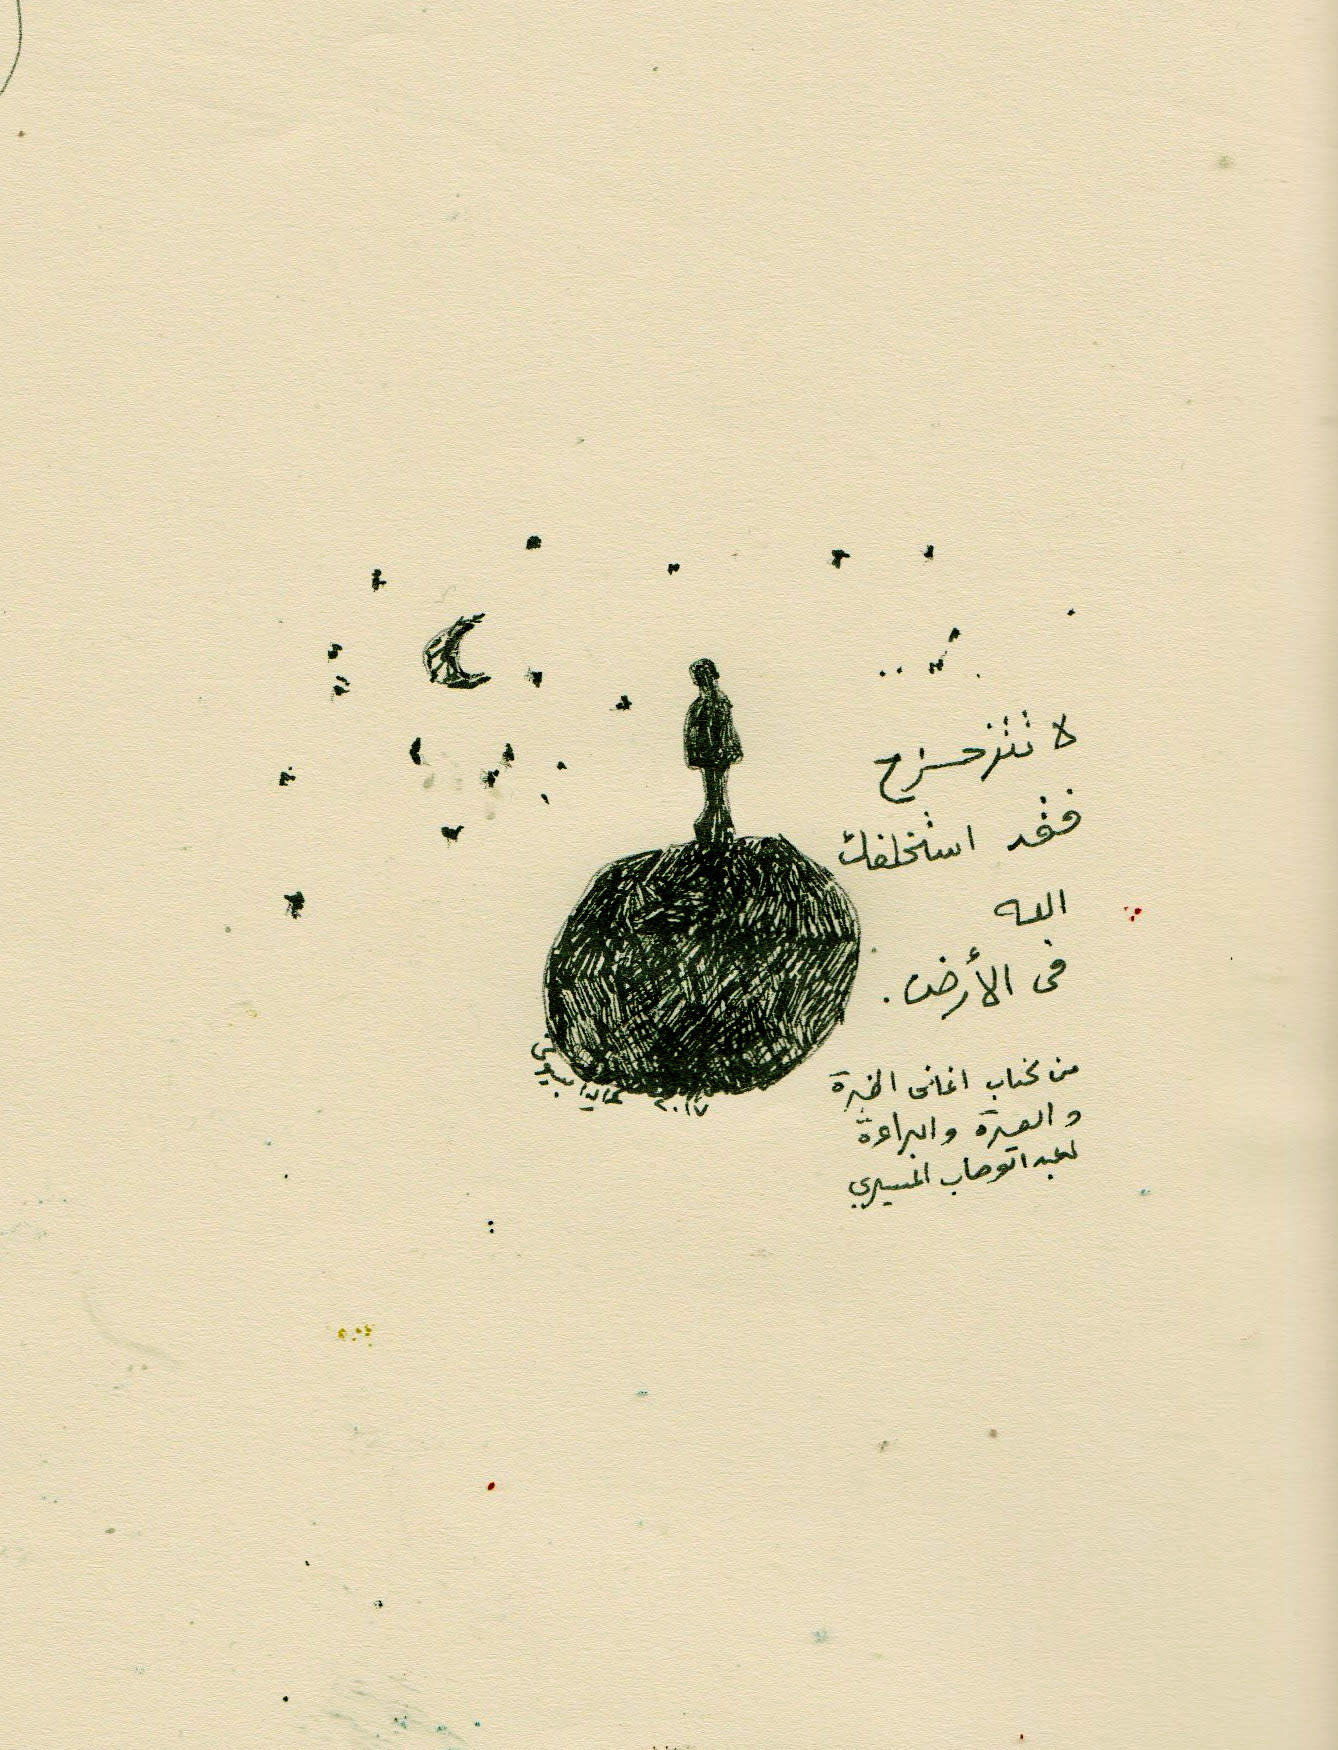 لا تتزحزح
فقد استخلفك
الله
فى الأرض.
من كتاب اغانى الخبرة
و الحيرة والبراءة
لعبد الوهاب المسيري
بسيونى
٢٠١٧